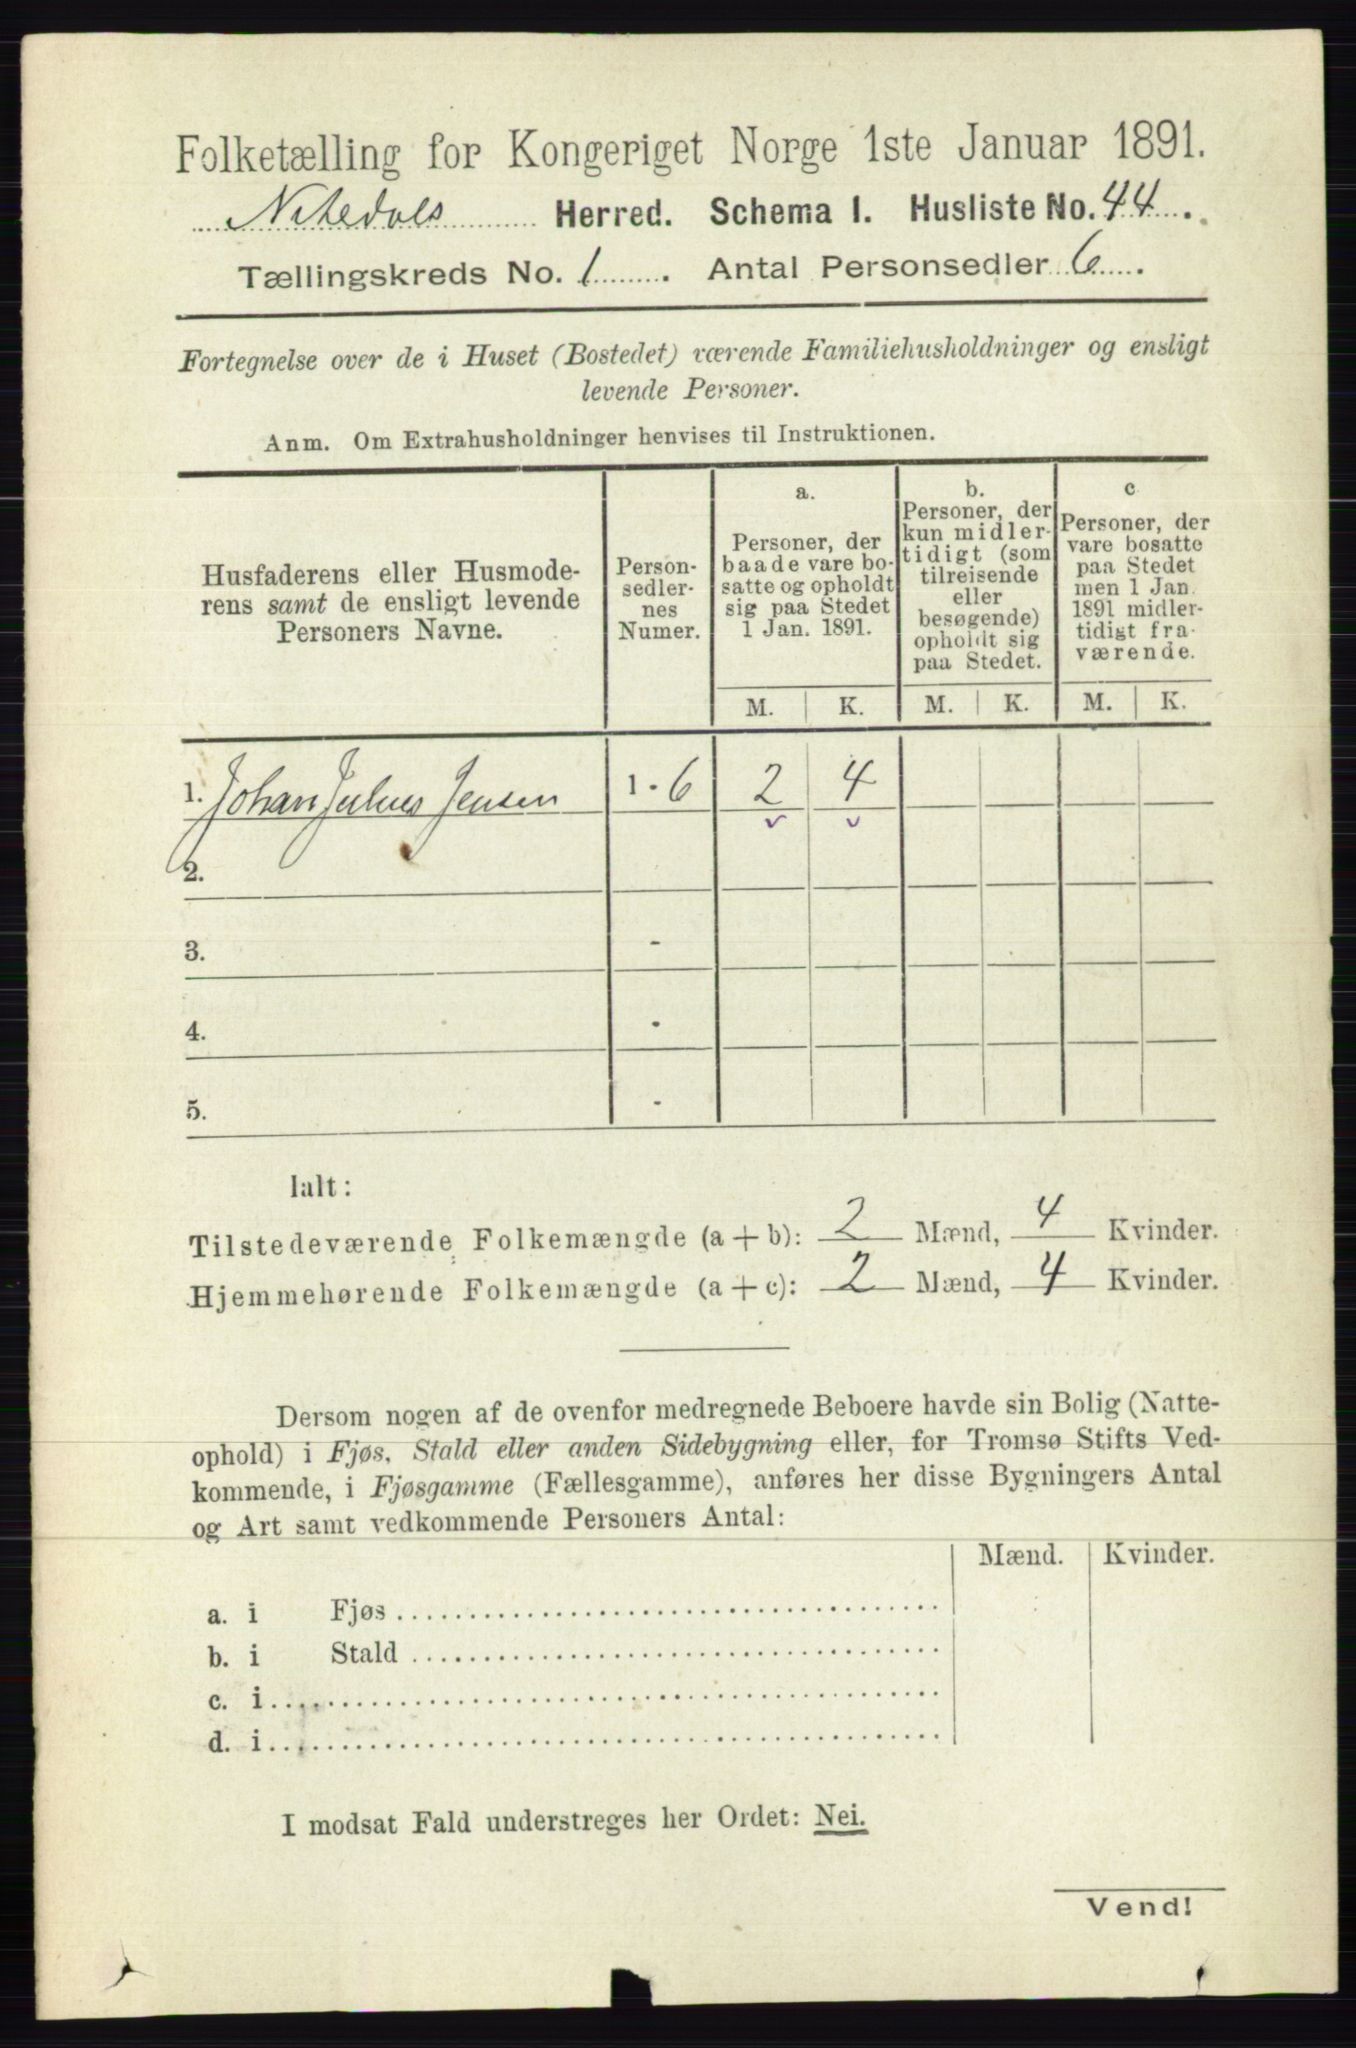 Folketælling for Kongeriget Norge 1ste Januar 1891.
Nitedals Herred. Schema I. Husliste No. 44.
Tællingskreds No. 1. Antal Personsedler 6.
Fortegnelse over de i Huset (Bostedet) værende Familiehusholdninger og ensligt
levende Personer.
Anm. Om Extrahusholdninger henvises til Instruktionen.
Husfaderens eller Husmode-
rens samt de ensligt levende
Personers Navne.
Person-
sedler-
nes
Numer.
a.
Personer, der
baade vare bo-
satte og opholdt
sig paa Stedet
1 Jan. 1891.
b.
Personer, der
kun midler-
tidigt (som
tilreisende
eller
besøgende)
opholdt sig
paa Stedet.
c
Personer, der
vare bosatte
paa Stedet
men 1 Jan.
1891 midler-
tidigt fra-
værende.
M. K. M. K. M. K.
1. Johan Julius Jensen 1 - 6 2 4
2.
3. -
4. -
5. -
Ialt:
Tilstedeværende Folkemængde (a + b): 2 Mænd, 4 Kvinder.
Hjemmehørende Folkemængde (a + c): 2 Mænd, 4 Kvinder.
Dersom nogen af de ovenfor medregnede Beboere havde sin Bolig (Natte-
ophold) i Fjøs, Stald eller anden Sidebygning eller, for Tromsø Stifts Ved-
kommende, i Fjøsgamme (Fællesgamme), anføres her disse Bygningers Antal
og Art samt vedkommende Personers Antal:
Mænd. Kvinder.
a. i Fjøs
b. i Stald
c. i
d. i
I modsat Fald understreges her Ordet: Nei.
Vend!